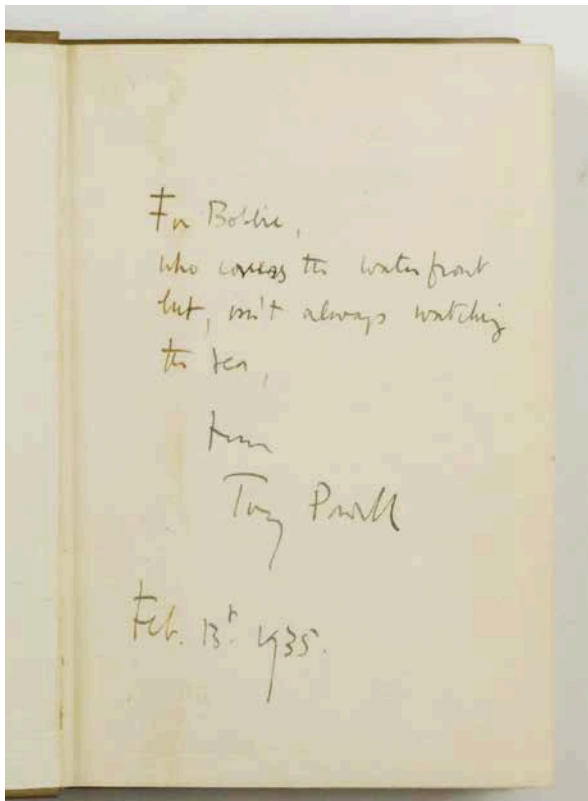 For Bobbie,
who covers the waterfront
but, isn't always watching
the sea,
from
Tony Powell
Feb. 13t. 1935.